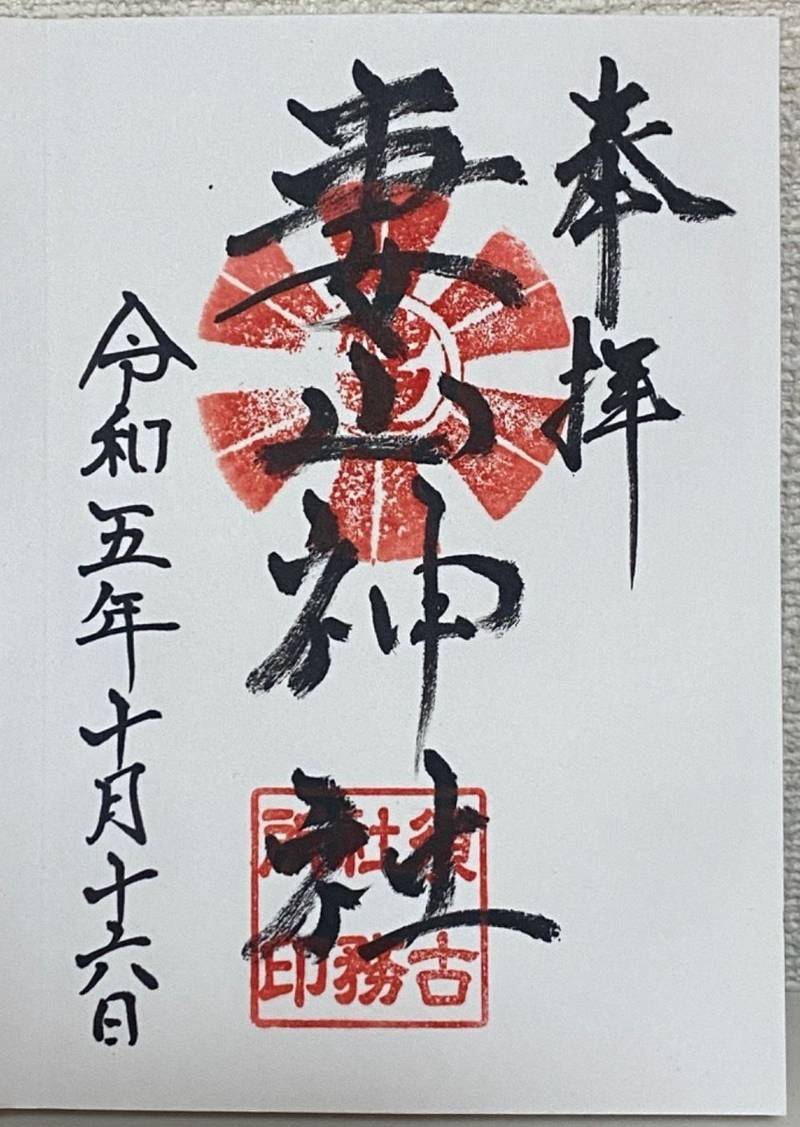 奉拝
妻山神社
須古
社務
所印
令和五年十月十六日